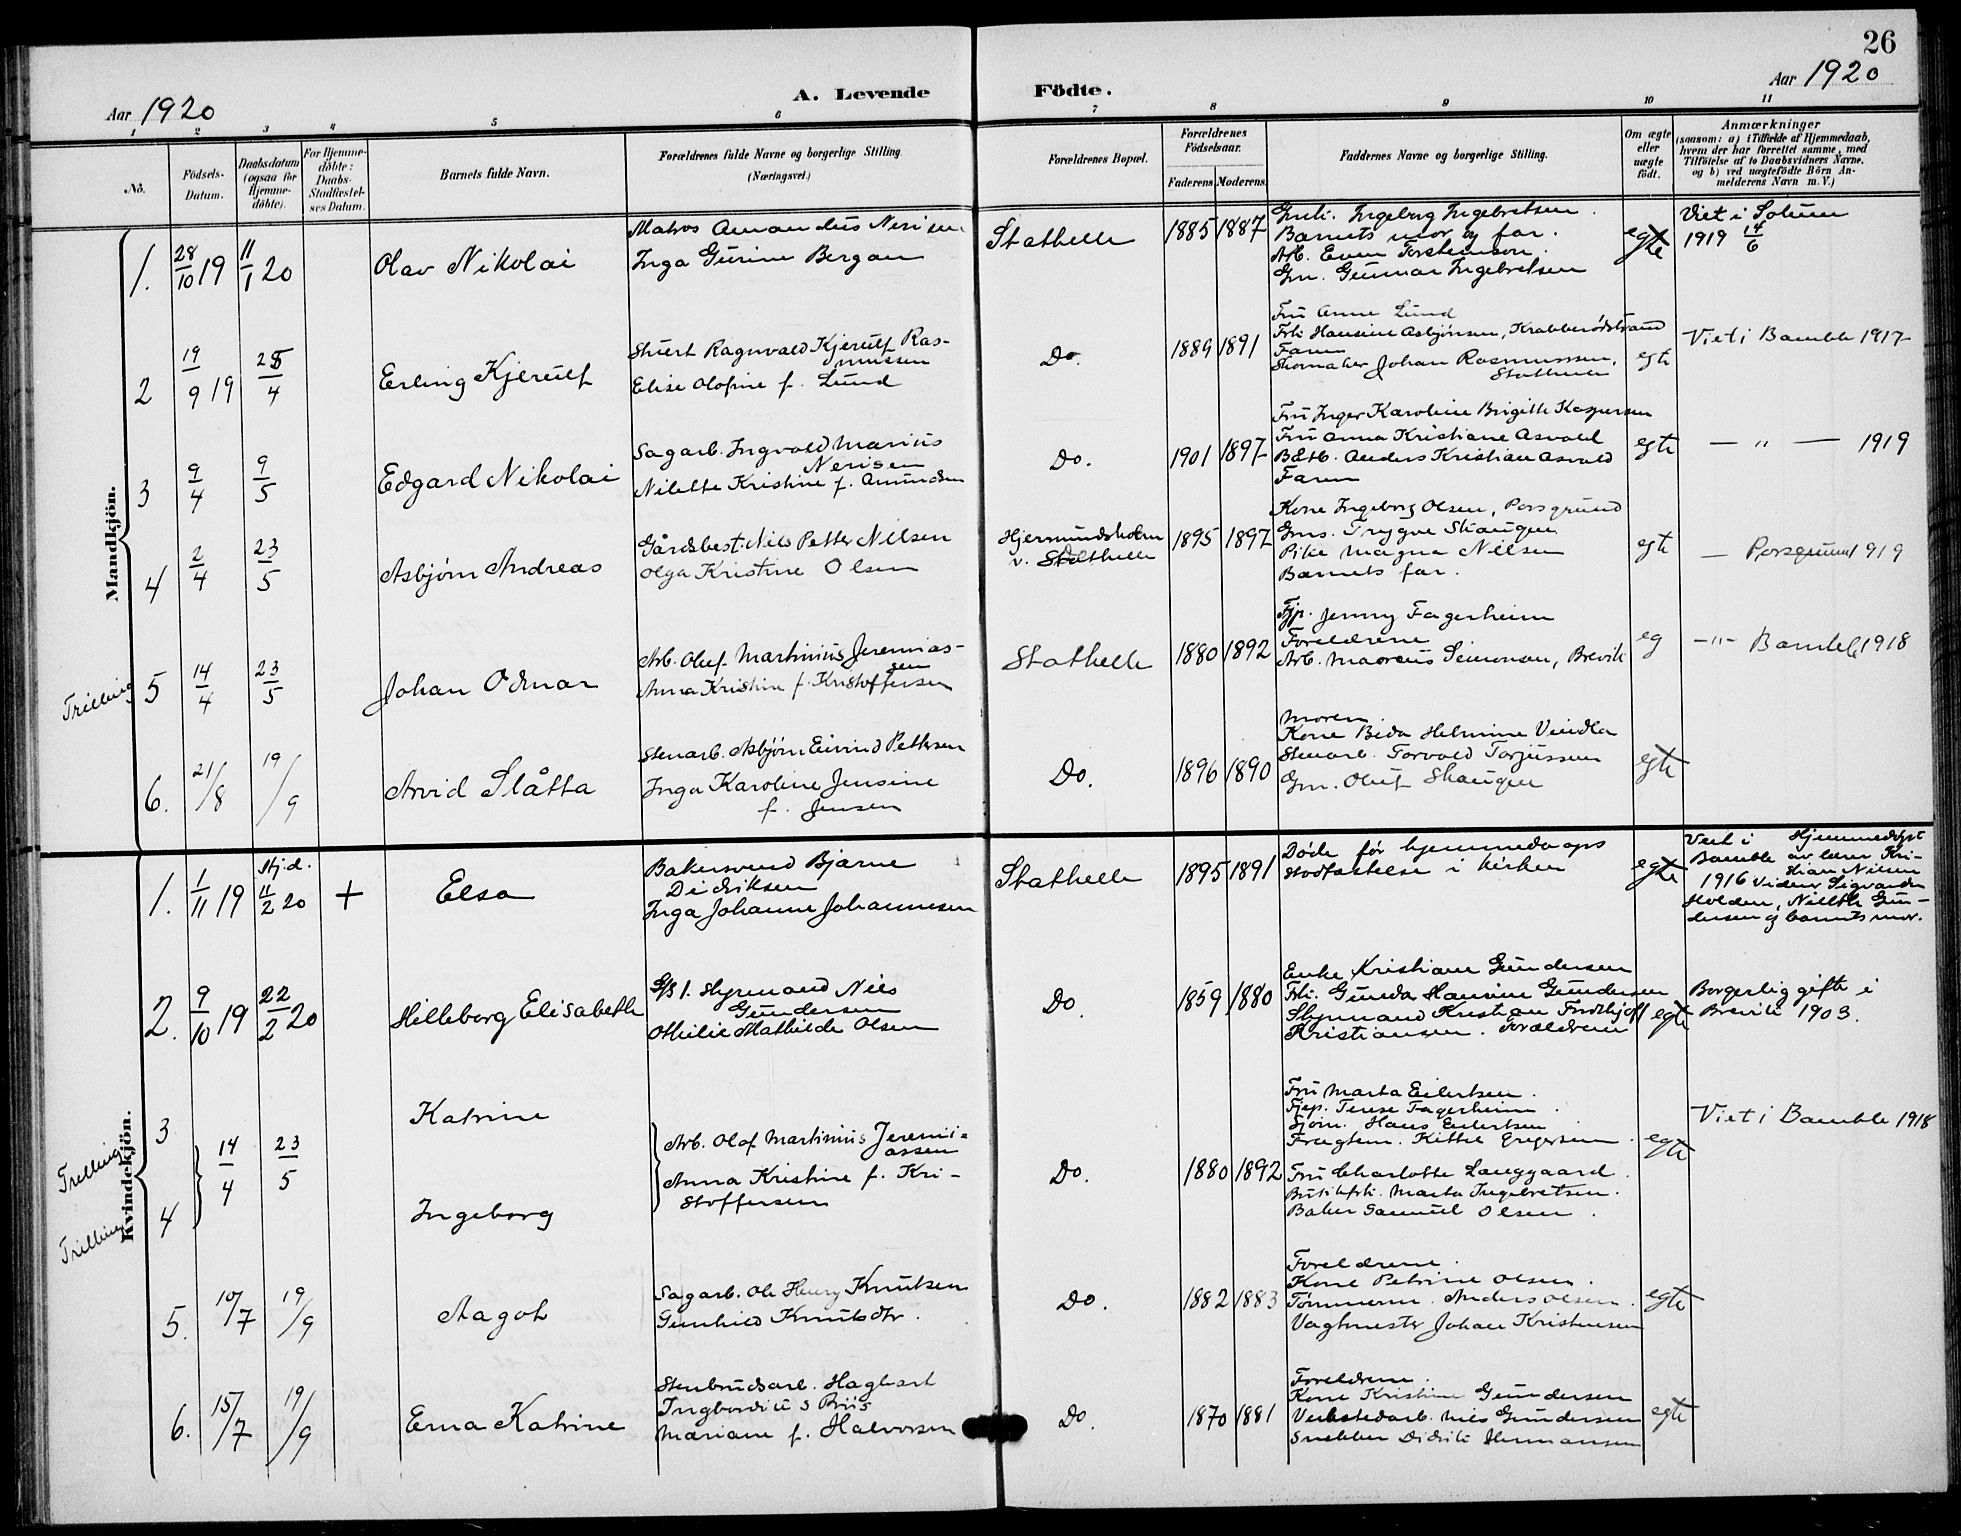 26
Aar 1920
A. Levende Födte.
Aar 1920
1 2 3 4 5 6 7 8 9 10 11
No.
Födsels-Datum.
Daabsdatum (ogsaa for Hjemme-döbte).
For Hjemme-döbte: Daabs-Stadfæstel-ses Datum.
Barnets fulde Navn.
Forældrenes fulde Navne og borgerlige Stilling.
(Næringsvei.)
Forældrenes Bopæl.
Forældrenes Födselsaar.
Faderens Moderens
Faddernes Navne og borgerlige Stilling.
Om ægte eller uægte födt.
Anmærkninger
(saasom: a) i Tilfælde af Hjemmedaab,
hvem der har forrettet samme, med
Tilföielse af to Daabsvidners Navne,
og b) ved uægtefödte Börn An-
melderens Navn m. V.)
Mandkjön.
1. 28/10 19 11/1 20
Olav Nikolai
Matros Amandus Nerisen
Inga Gurine Bergan
Stathelle
1885 1887
Ingeborg Ingebretsen
Barnets mor og far.
Arb. Even Torstenson.
Gm. Gunnar Ingebretsen
egte
Viet i Solum
1919 14/6
2 19/9 19 25/4
Erling Kjerulf
Stuert Ragnvald Kjerulf Ras-
mussen
Elise Olofine f. Lund
Do.
1889 1891
Fru Anne Lund
Frk. Hansine Asbjørnsen, Krabberødstrand
Faren
Skomaker Johan Rasmussen,
Stathelle
egte
Viet i Bamble 1917
3 9/4 9/5
Edgard Nikolai
Sagarb. Ingvald Marius
Nerisen
Nilette Kristine f. Amundsen
Do.
1901 1897
Fru Inger Karoline Brigitte Kaspersen
Fru Anna Kristiane Asvald
Anders Kristian Asvald
Faren
egte
— " — 1919
4 2/4 23/5
Asbjørn Andreas
Gårdsbest. Nils Petter Nilsen
Olga Kristine Olsen
Hjermundsholm
v. Stathelle
1895 1897
Kone Ingeborg Olsen, Porsgrund
Gms. Trygve Skaugen
Pike Magna Nilsen
Barnets far.
egte
— Porsgrund 1919
Trilling
5 14/4 23/5
Johan Odmar
Arb. Oluf Martinius Jeremias-
sen
Anna Kristine f. Kristoffersen
Stathelle
1880 1892
Fjp. Jenny Fagerheim
Foreldrene
Arb. Marcus Simonsen, Brevik
eg
—"— Bamble 1918
6. 21/8 19/9
Arvid Slåtta
Stenarb. Asbjørn Eivind Pettersen
Inga Karoline Jensine
f. Jensen
Do.
1896 1890
Moren.
Kone Beda Helmine Vindla
Stenarb. Torvald Torjussen
Gm. Oluf Skaugen
egte
Kvindekjön.
1. 1/11 19 Hj.d. 11/2 20 +
Elsa
Bakersvend Bjarne
Didriksen
Inga Johanne Johannesen
Stathelle
1895 1891
Døde før hjemmedaaps
stadfæstelse i kirken
egte
Viet i Hjemmedøpt
Bamble av lærer Kri-
1916 stian Nilsen
Holden, Nilette Gun-
dersen og barnets mor.
2. 9/10 19 22/2 20
Hilleborg Elisabeth
D/S 1. styrmand Nils
Gundersen
Othilie Mathilde Olsen
Do
1859 1880
Enke Kristiane Gundersen
Frk. Gunda Hansine Gundersen
Styrmand Kristian Fridthjof
Kristiansen. Forældrene
egte
Borgerlig gifte i
Brevik 1903.
Trilling
3
Katrine
14/4 23/5
Trilling
4
Ingeborg
Arb. Olaf Martinius Jeremi-
assen
Anna Kristine f. Kri-
stoffersen
Do.
1880 1892
Fru Marta Eilertsen.
Fjp. Terese Fagerheim.
Sjøm. Hans Eilertsen
Fragtem. Kittil Gregersen.
Fru Charlotte Langgaard.
Butikfrk. Marta Ingebretsen.
Baker Samuel Olsen.
egte
Viet i Bamble 1918
5. 10/7 19/9
Aagot
Sagarb. Ole Henry Knutsen
Gunhild Knutsdtr.
Do.
1882 1883
Foreldrene.
Kone Petrine Olsen.
Tømmerm. Anders Olsen.
Vagtmester Johan Kristensen
egte
6. 15/7 19/9
Erna Katrine
Stenbrudsarb. Hagbart
Ingbordius Biis
Mariane f. Halvorsen
Do.
1870 1881
Foreldrene.
Kone Kristine Gundersen
Verkstedarb. Nils Gundersen
Snekker Didrik Hermansen
egte